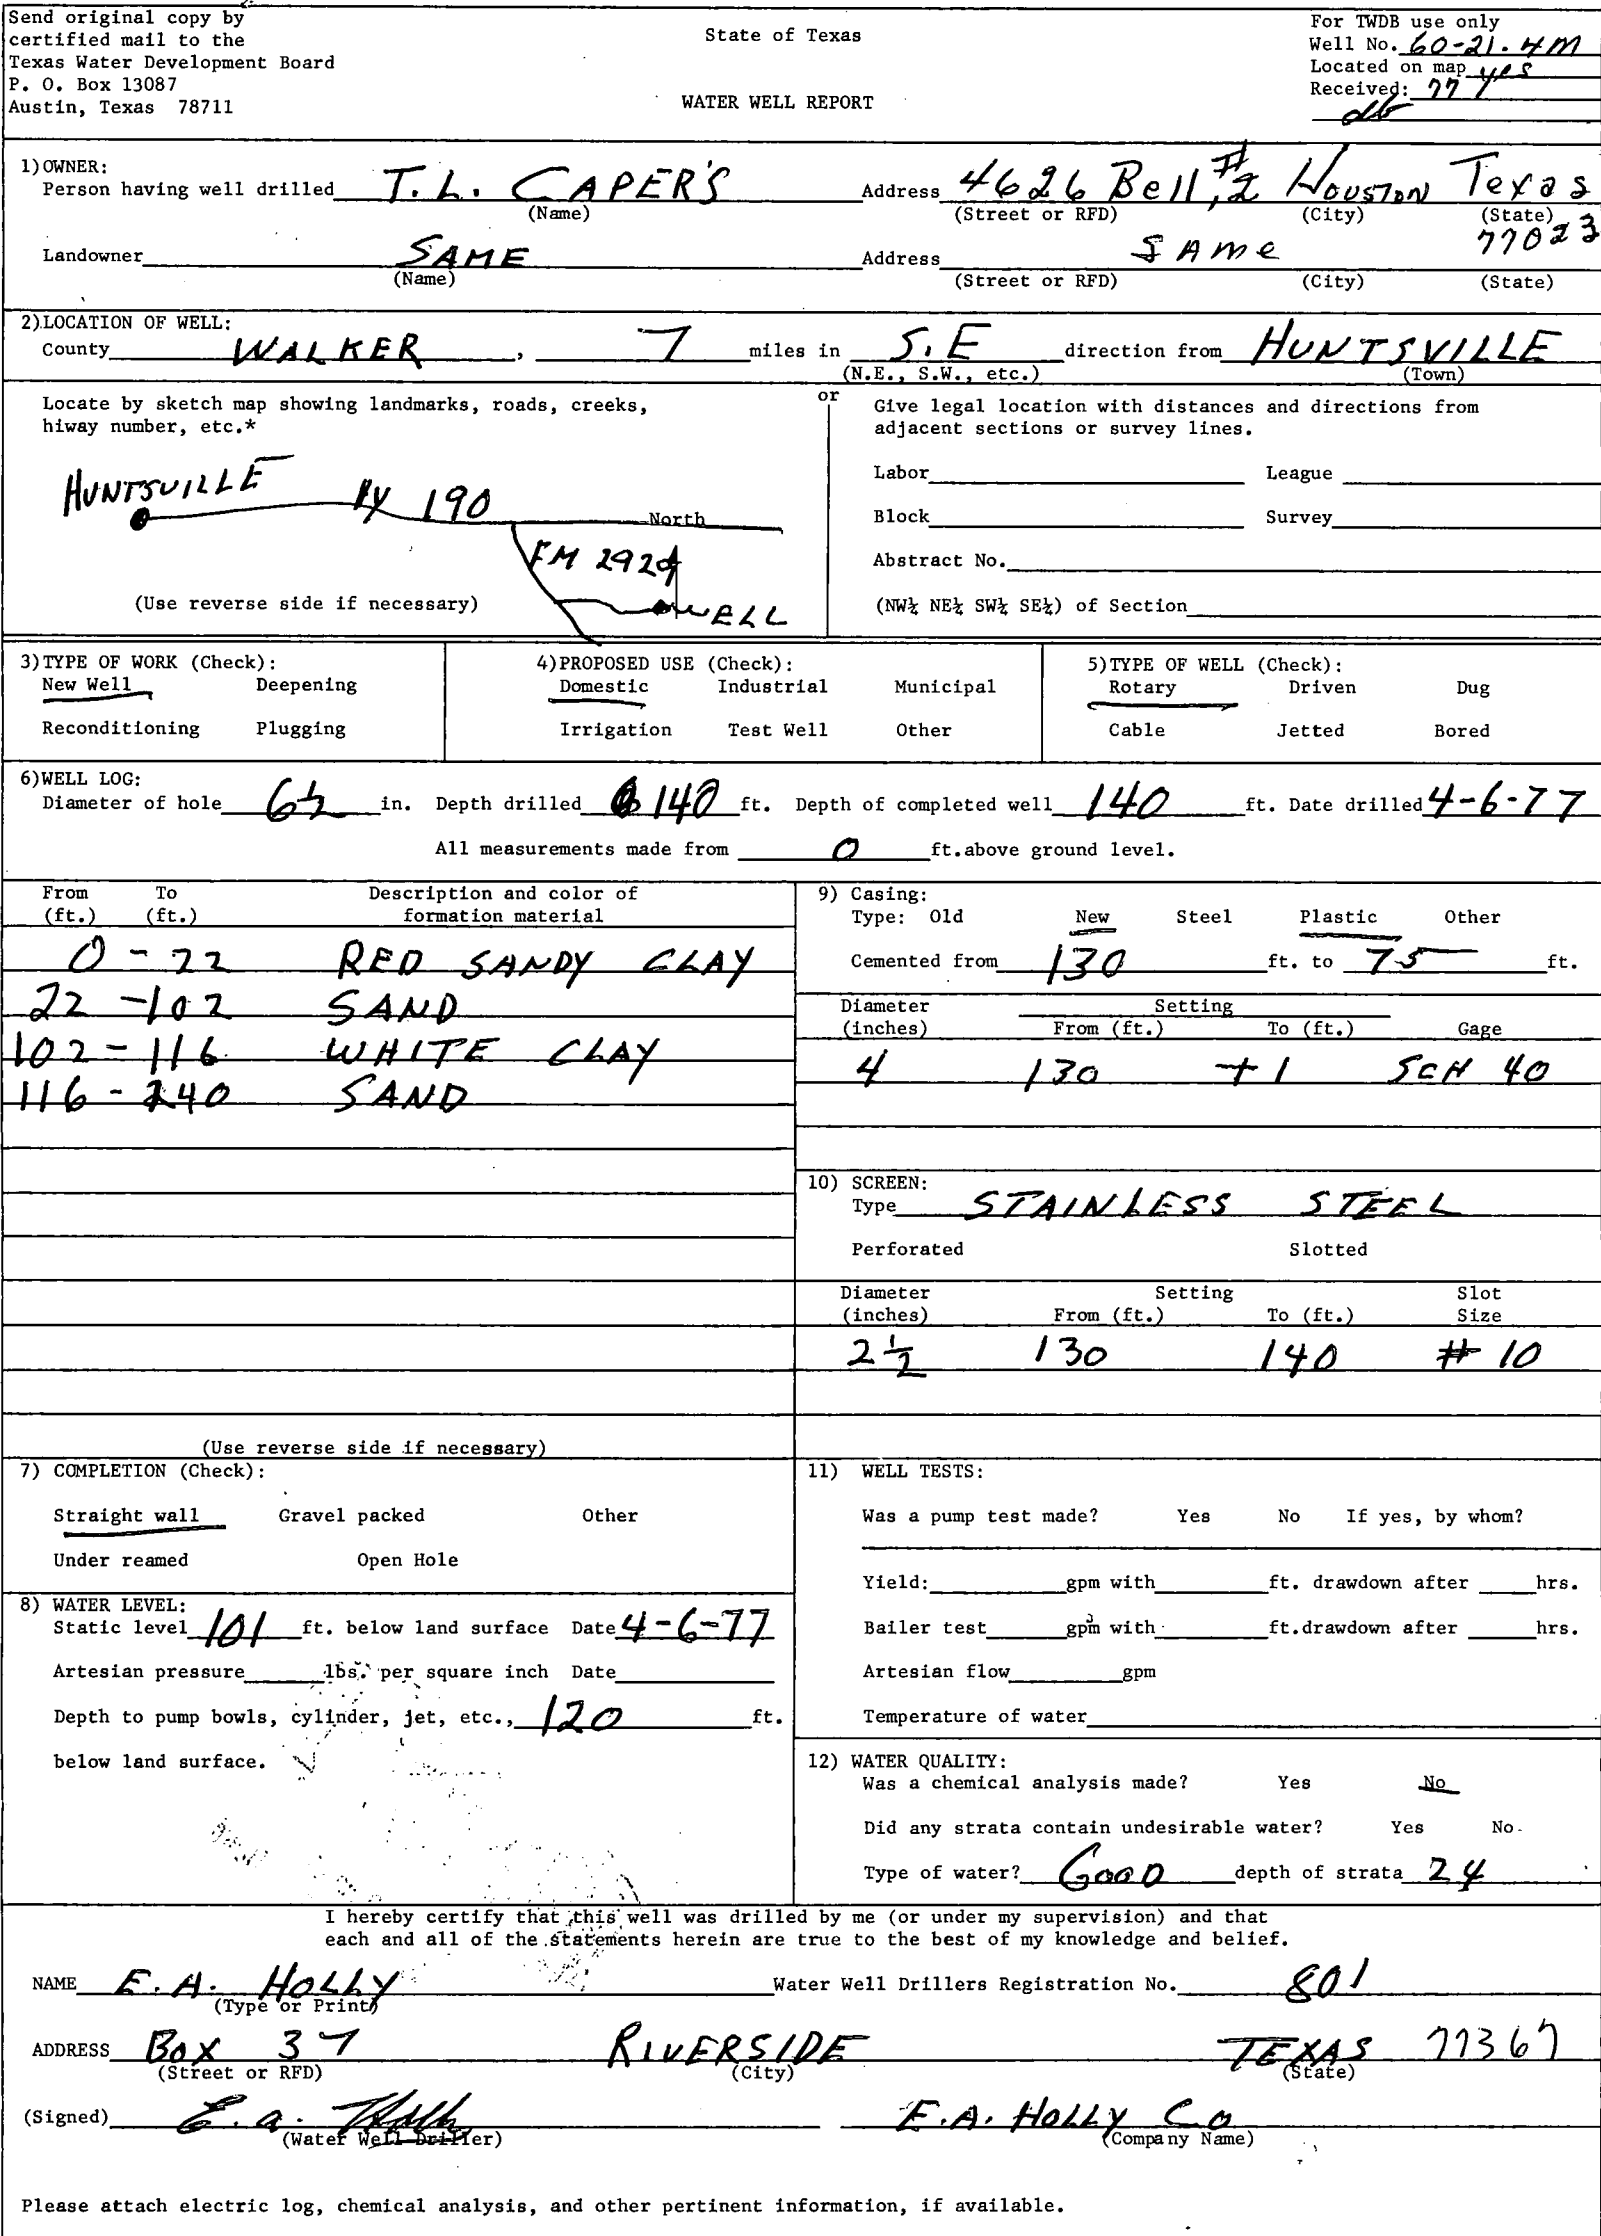 Send original copy by
certified mail to the
Texas Water Development Board
P. O. Box 13087
Austin, Texas 78711
State of Texas
WATER WELL REPORT
For TWDB use only
Well No. 60-21.4M
Located on map yes
Received: 77 y
db
1)OWNER:
Person having well drilled T.L. CAPER'S Address 4626 Bell, #2 HOUSTON Texas
(Name) (Street or RFD) (City) (State)
77023
Landowner SAME Address SAME
(Name) (Street or RFD) (City) (State)
2).LOCATION OF WELL:
County WALKER, 7 miles in S.E direction from HUNTSVILLE
(N.E., S.W., etc.) (Town)
Locate by sketch map showing landmarks, roads, creeks,
hiway number, etc.*
HUNTSVILLE HY 190
North
FM 2929
WELL
(Use reverse side if necessary)
or
Give legal location with distances and directions from
adjacent sections or survey lines.
Labor League
Block Survey
Abstract No.
(NW¼ NE¼ SW¼ SE¼) of Section
3)TYPE OF WORK (Check):
New Well Deepening
Reconditioning Plugging
4)PROPOSED USE (Check):
Domestic Industrial Municipal
Irrigation Test Well Other
5)TYPE OF WELL (Check):
Rotary Driven Dug
Cable Jetted Bored
6)WELL LOG:
Diameter of hole 6½ in. Depth drilled 140 ft. Depth of completed well 140 ft. Date drilled 4-6-77
All measurements made from 0 ft.above ground level.
From To Description and color of
(ft.) (ft.) formation material
0 - 22 RED SANDY CLAY
22 - 102 SAND
102 - 116 WHITE CLAY
116 - 240 SAND
(Use reverse side if necessary)
9) Casing:
Type: Old New Steel Plastic Other
Cemented from 130 ft. to 75 ft.
Diameter Setting
(inches) From (ft.) To (ft.) Gage
4 130 +1 SCH 40
10) SCREEN:
Type STAINLESS STEEL
Perforated Slotted
Diameter Setting Slot
(inches) From (ft.) To (ft.) Size
2½ 130 140 # 10
7) COMPLETION (Check):
Straight wall Gravel packed Other
Under reamed Open Hole
8) WATER LEVEL:
Static level 101 ft. below land surface Date 4-6-77
Artesian pressure lbs. per square inch Date
Depth to pump bowls, cylinder, jet, etc., 120 ft.
below land surface.
11) WELL TESTS:
Was a pump test made? Yes No If yes, by whom?
Yield: gpm with ft. drawdown after hrs.
Bailer test gpm with ft.drawdown after hrs.
Artesian flow gpm
Temperature of water
12) WATER QUALITY:
Was a chemical analysis made? Yes No
Did any strata contain undesirable water? Yes No
Type of water? GOOD depth of strata 24
I hereby certify that this well was drilled by me (or under my supervision) and that
each and all of the statements herein are true to the best of my knowledge and belief.
NAME E.A. HOLLY Water Well Drillers Registration No. 801
(Type or Print)
ADDRESS BOX 37 RIVERSIDE TEXAS 77367
(Street or RFD) (City) (State)
(Signed) E. a. Holly E.A. HOLLY Co
(Water Well Driller) (Company Name)
Please attach electric log, chemical analysis, and other pertinent information, if available.